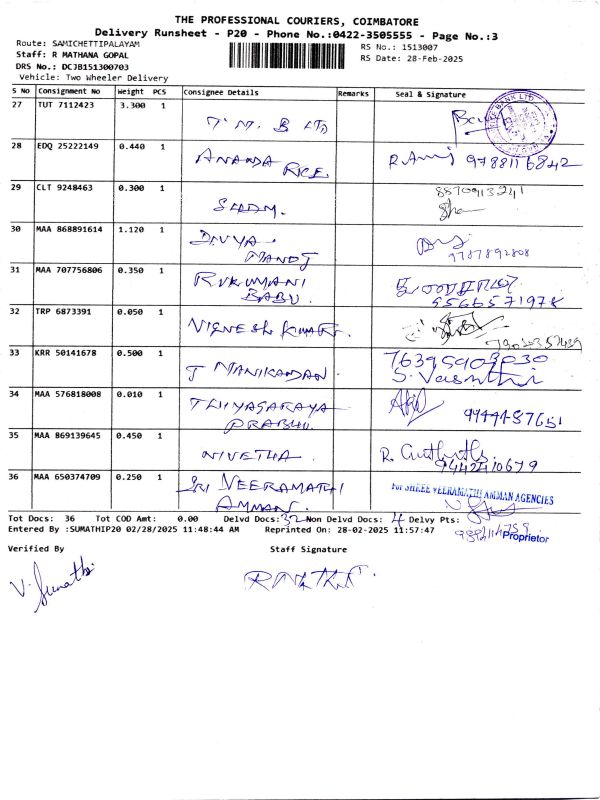 THE PROFESSIONAL COURIERS, COIMBATORE
Delivery Runsheet - P20 - Phone No.:0422-3505555 - Page No.:3
Route: SAMICHETTIPALAYAM
RS No.: 1513007
Staff: R MATHANA GOPAL
RS Date: 28-Feb-2025
DRS No.: DCJB151300703
Vehicle: Two Wheeler Delivery
S No Consignment No Weight PCS Consignee Details Remarks Seal & Signature
27 TUT 7112423 3.300 1 T. M. B LTD
28 EDQ 25222149 0.440 1 ANANDA RICE. 9788116842
29 CLT 9248463 0.300 1
30 MAA 868891614 1.120 1 DIVYA MANOJ 9787892808
31 MAA 707756806 0.350 1 RUKUMANI BABU. 9566571978
32 TRP 6873391 0.050 1 VIGNESH KUMAR.
33 KRR 50141678 0.500 1 J MANIKANDAN S. Vasanthi
34 MAA 576818008 0.010 1 THIYAGARAYA PRABHU.
35 MAA 869139645 0.450 1 NIVETHA. 9442410679
36 MAA 650374709 0.250 1 SRI VEERAMATHI AMMAN. For SHREE VEERAMATHI AMMAN AGENCIES
Proprietor
Tot Docs: 36 Tot COD Amt: 0.00 Delvd Docs: 32 Non Delvd Docs: 4 Delvy Pts:
Entered By :SUMATHIP20 02/28/2025 11:48:44 AM Reprinted On: 28-02-2025 11:57:47
Verified By Staff Signature
V. Sumathi